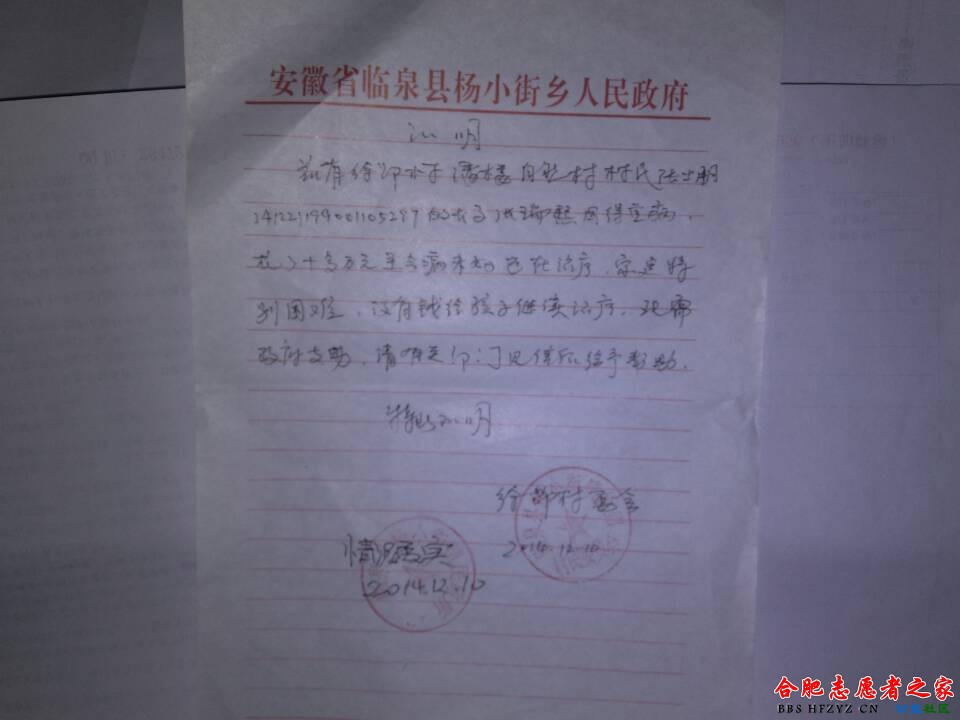 安徽省临泉县杨小街乡人民政府
证明
兹有徐郢村潘楼自然村村民张士朋
的长子张瑞熙因得重病,
花二十多万元至今病未知还在治疗,家庭特
别困难,没有钱给孩子继续治疗,现需
政府支助,请有关部门见信后给予帮助.
特此证明
徐郢村委会
2014.12.10
情况属实
2014.12.10
合肥志愿者之家
BBS HFZYZ CN 社区